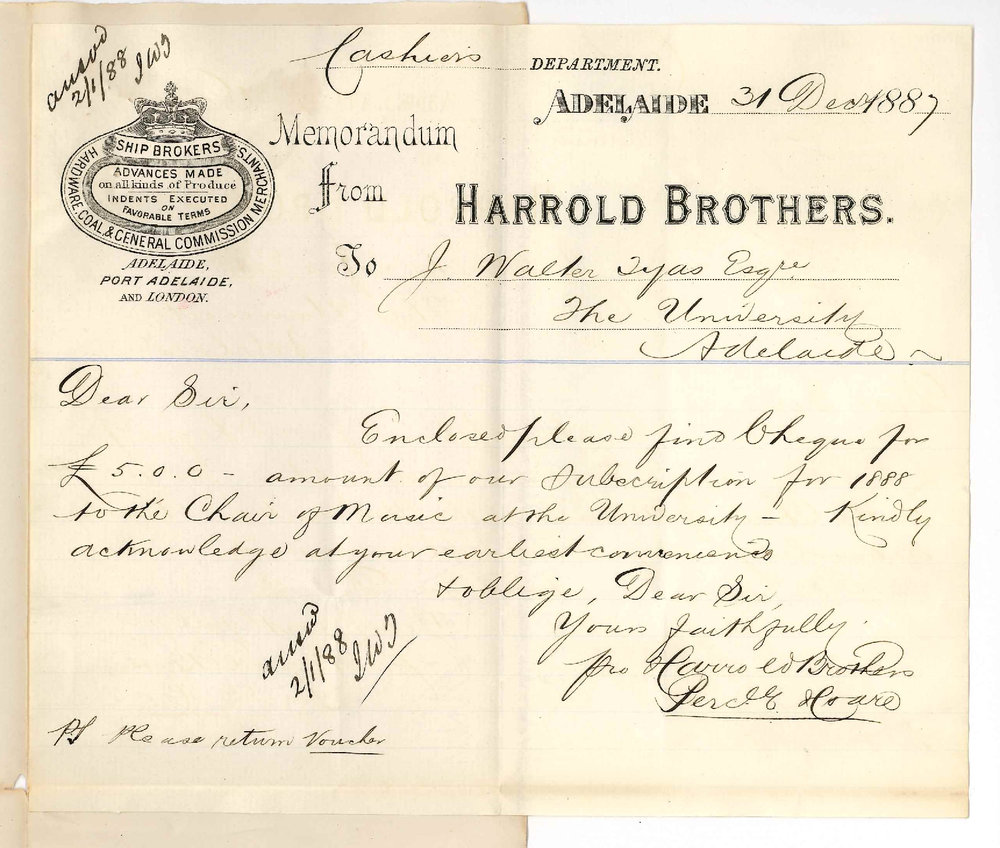 answd
2/1/88 JWT
Cashiers DEPARTMENT.
ADELAIDE 31 Decr 1887
SHIP BROKERS
HARDWARE, COAL & GENERAL COMMISSION MERCHANTS
ADVANCES MADE
on all kinds of Produce
INDENTS EXECUTED
ON
FAVORABLE TERMS
ADELAIDE,
PORT ADELAIDE,
AND LONDON.
Memorandum
from
HARROLD BROTHERS.
To J. Walter Tyas Esqre
The University
Adelaide ~
Dear Sir,
Enclosed please find Cheque for
£5.0.0 - amount of our subscription for 1888
to the Chair of Music at the University - Kindly
acknowledge at your earliest convenience
& oblige, Dear Sir,
Yours faithfully
pro Harrold Brothers
Percy E Hoare
answd
2/1/88 JWT
PS Please return Voucher